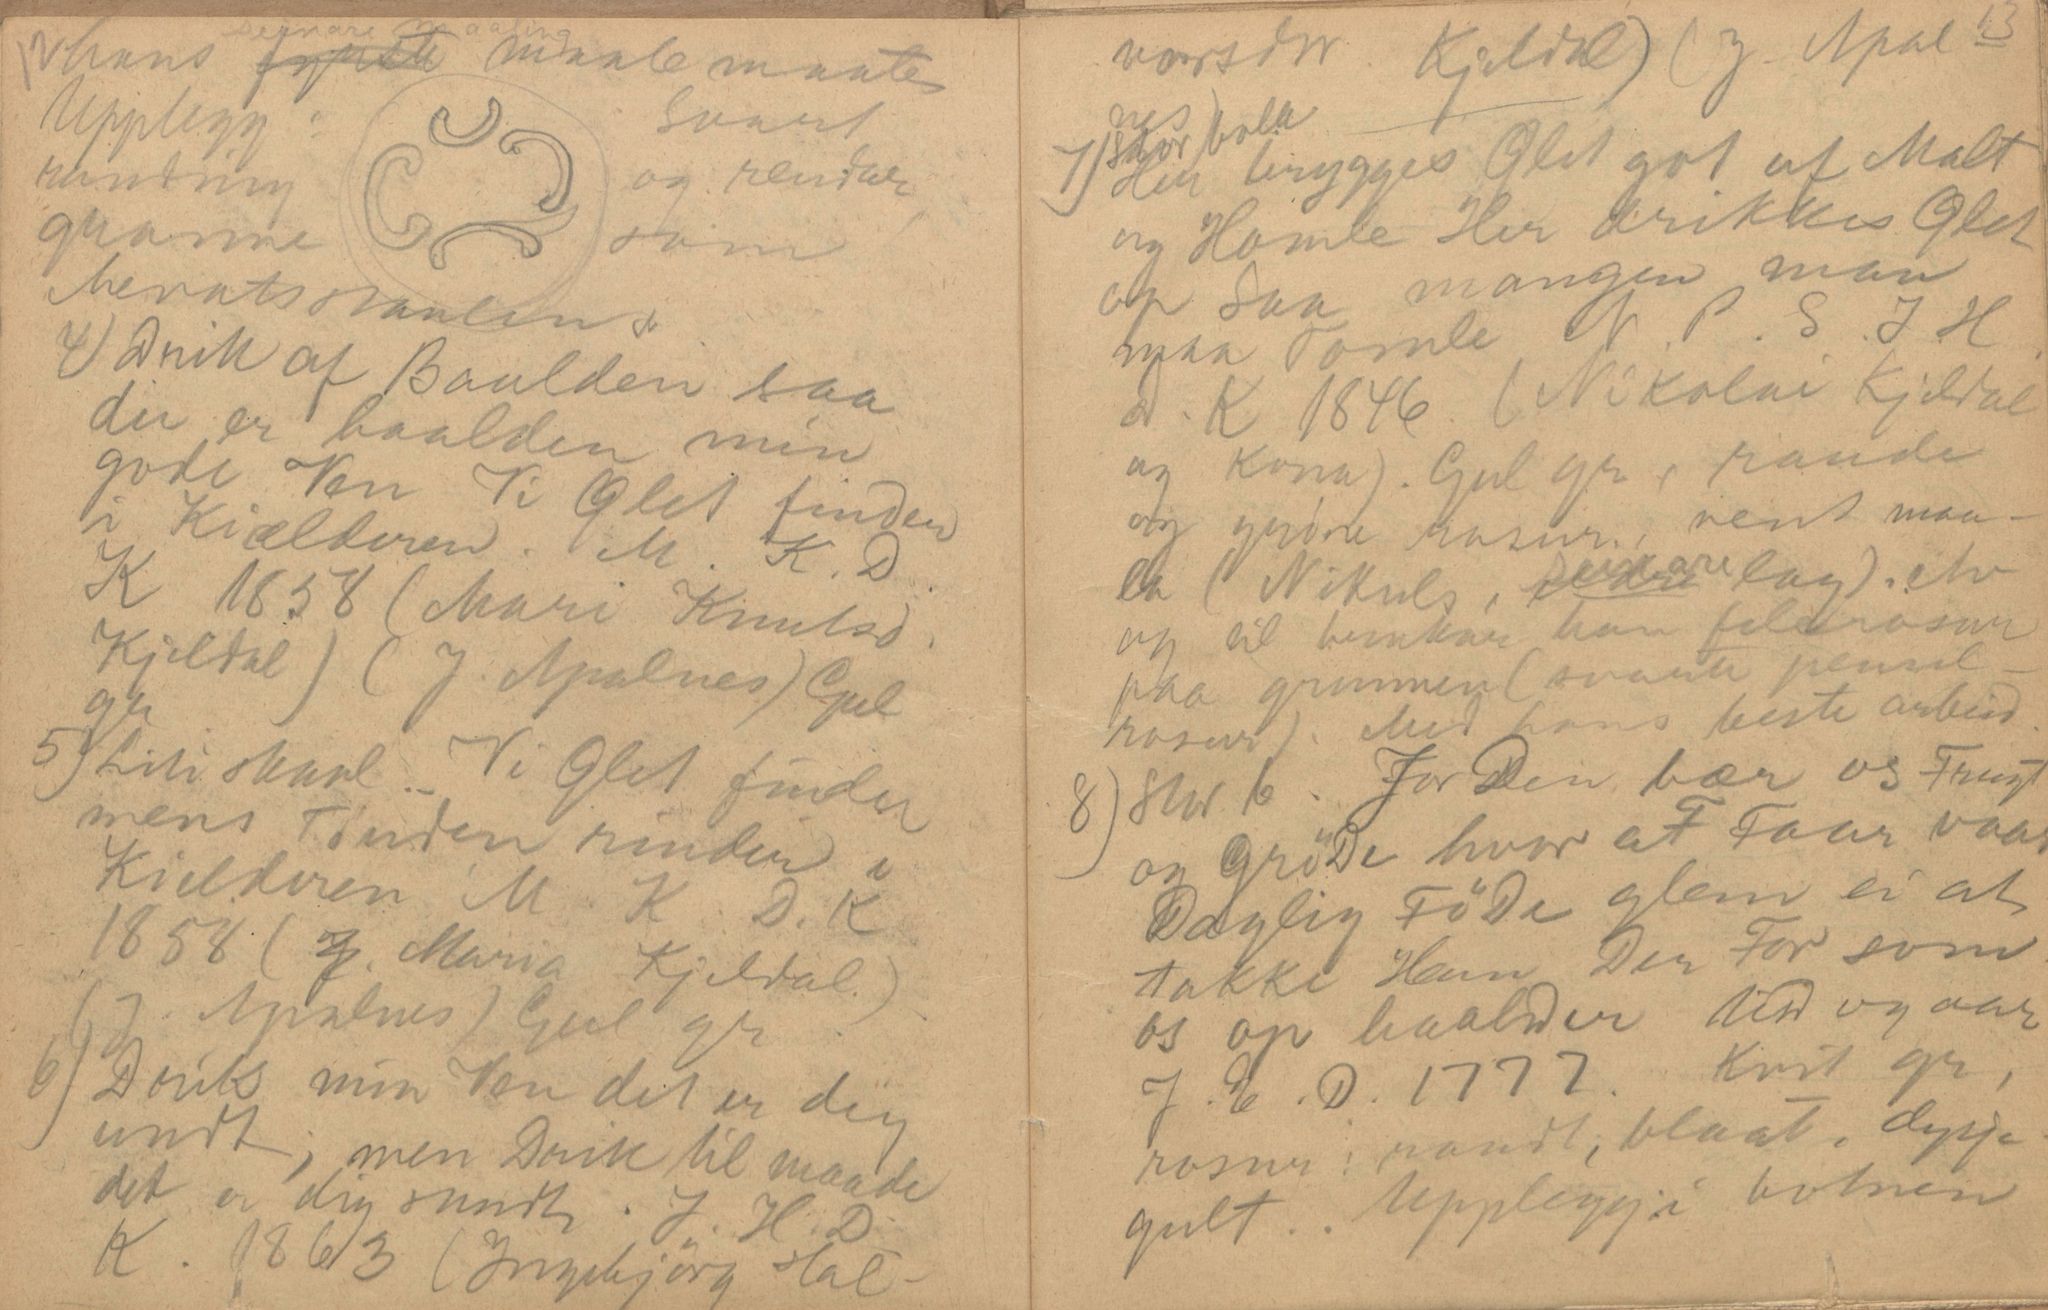 12
sennare maaling
hans maate
Upplegg: Svart
randing og rendur,
granne som
Meratsskaalens.
4) Drik af Baalden saa
der er baalden min
gode Ven Vi Ølet finder
i Kiælderen. M. K. D.
K 1858 (Mari Knutsd.
Kjeldal) (J. Apalnes) Gul
gr
5) Liti skaal.- Vi Ølet finder
mens Tønden rinder i
Kielderen M. K. D. K
1858 (Maria Kjeldal.)
(J. Apalnes) Gul gr.
6) Driks min Ven det er dig
undt, men Drik til maade
det er dig sundt. J. H. D.
K. 1863 (Ingebjörg Hal-
13
vorsdtr. Kjeldal) (J. Apal
nes)
7) Stor bolle
Her brygges Ølet got af Malt
og Homle Her drikkes Ølet
op Saa mangen man
maa Tomle N. P. S. J H.
d. K 1846. (Nikolai Kjeldal
og kona). Gul gr, raude
og gröne rosur, reint maa-
la (Nikuls, sennare lag). Av
og til brukar han
paa grunnen (svarte pensel-
rosur). Med hans beste arbeid.
8) Stor b. JorDen bær os Frugt
og GröDe hvor af Faar vaar
Daglig FöDe glem ei at
takke Ham Der For som
os op haalder tid og aar
J. E. D. 1777. Kvit gr,
rosur: raudt, blaat, dypje-
gult.. Upplegg i botnen